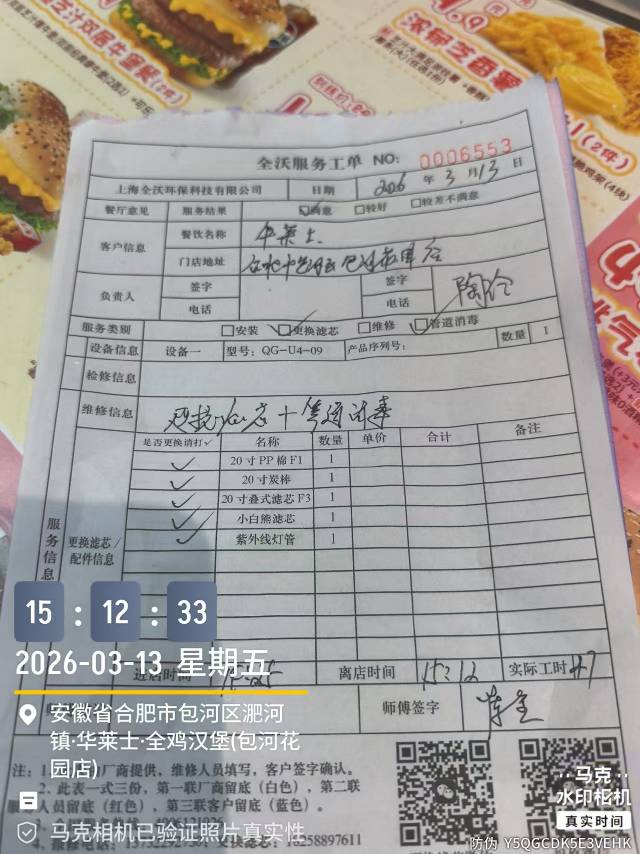 浓郁芝番薯
芝汁双层牛堡餐(2件)
全沃服务工单 NO: 0006553
上海全沃环保科技有限公司 日期 2026 年 3 月 13 日
餐厅意见 服务结果 ☑满意 □较好 □较差不满意
客户信息 餐饮名称 华莱士
门店地址
负责人 签字 签字
电话 电话
服务类别 □安装 ☑更换滤芯 □维修 ☑管道消毒
设备信息 设备一 型号: QG-U4-09 产品序列号: 数量 1
检修信息
维修信息 更换滤芯+管道消毒
是否更换请打✓ 名称 数量 单价 合计 备注
✓ 20寸PP棉F1 1
✓ 20寸炭棒 1
✓ 20寸叠式滤芯F3 1
✓ 小白熊滤芯 1
✓ 紫外线灯管 1
服务信息
更换滤芯/配件信息
进店时间 离店时间 15:12 实际工时 47
师傅签字
注: 1 厂商提供,维修人员填写,客户签字确认。
2、此表一式三份,第一联厂商留底(白色),第二联
人员留底(红色),第三联客户留底(蓝色)。
15:12:33
2026-03-13 星期五
安徽省合肥市包河区淝河
镇·华莱士·全鸡汉堡(包河花
园店)
马克相机已验证照片真实性
马克
水印相机
真实时间
防伪 Y5QGCDK5E3VEHK